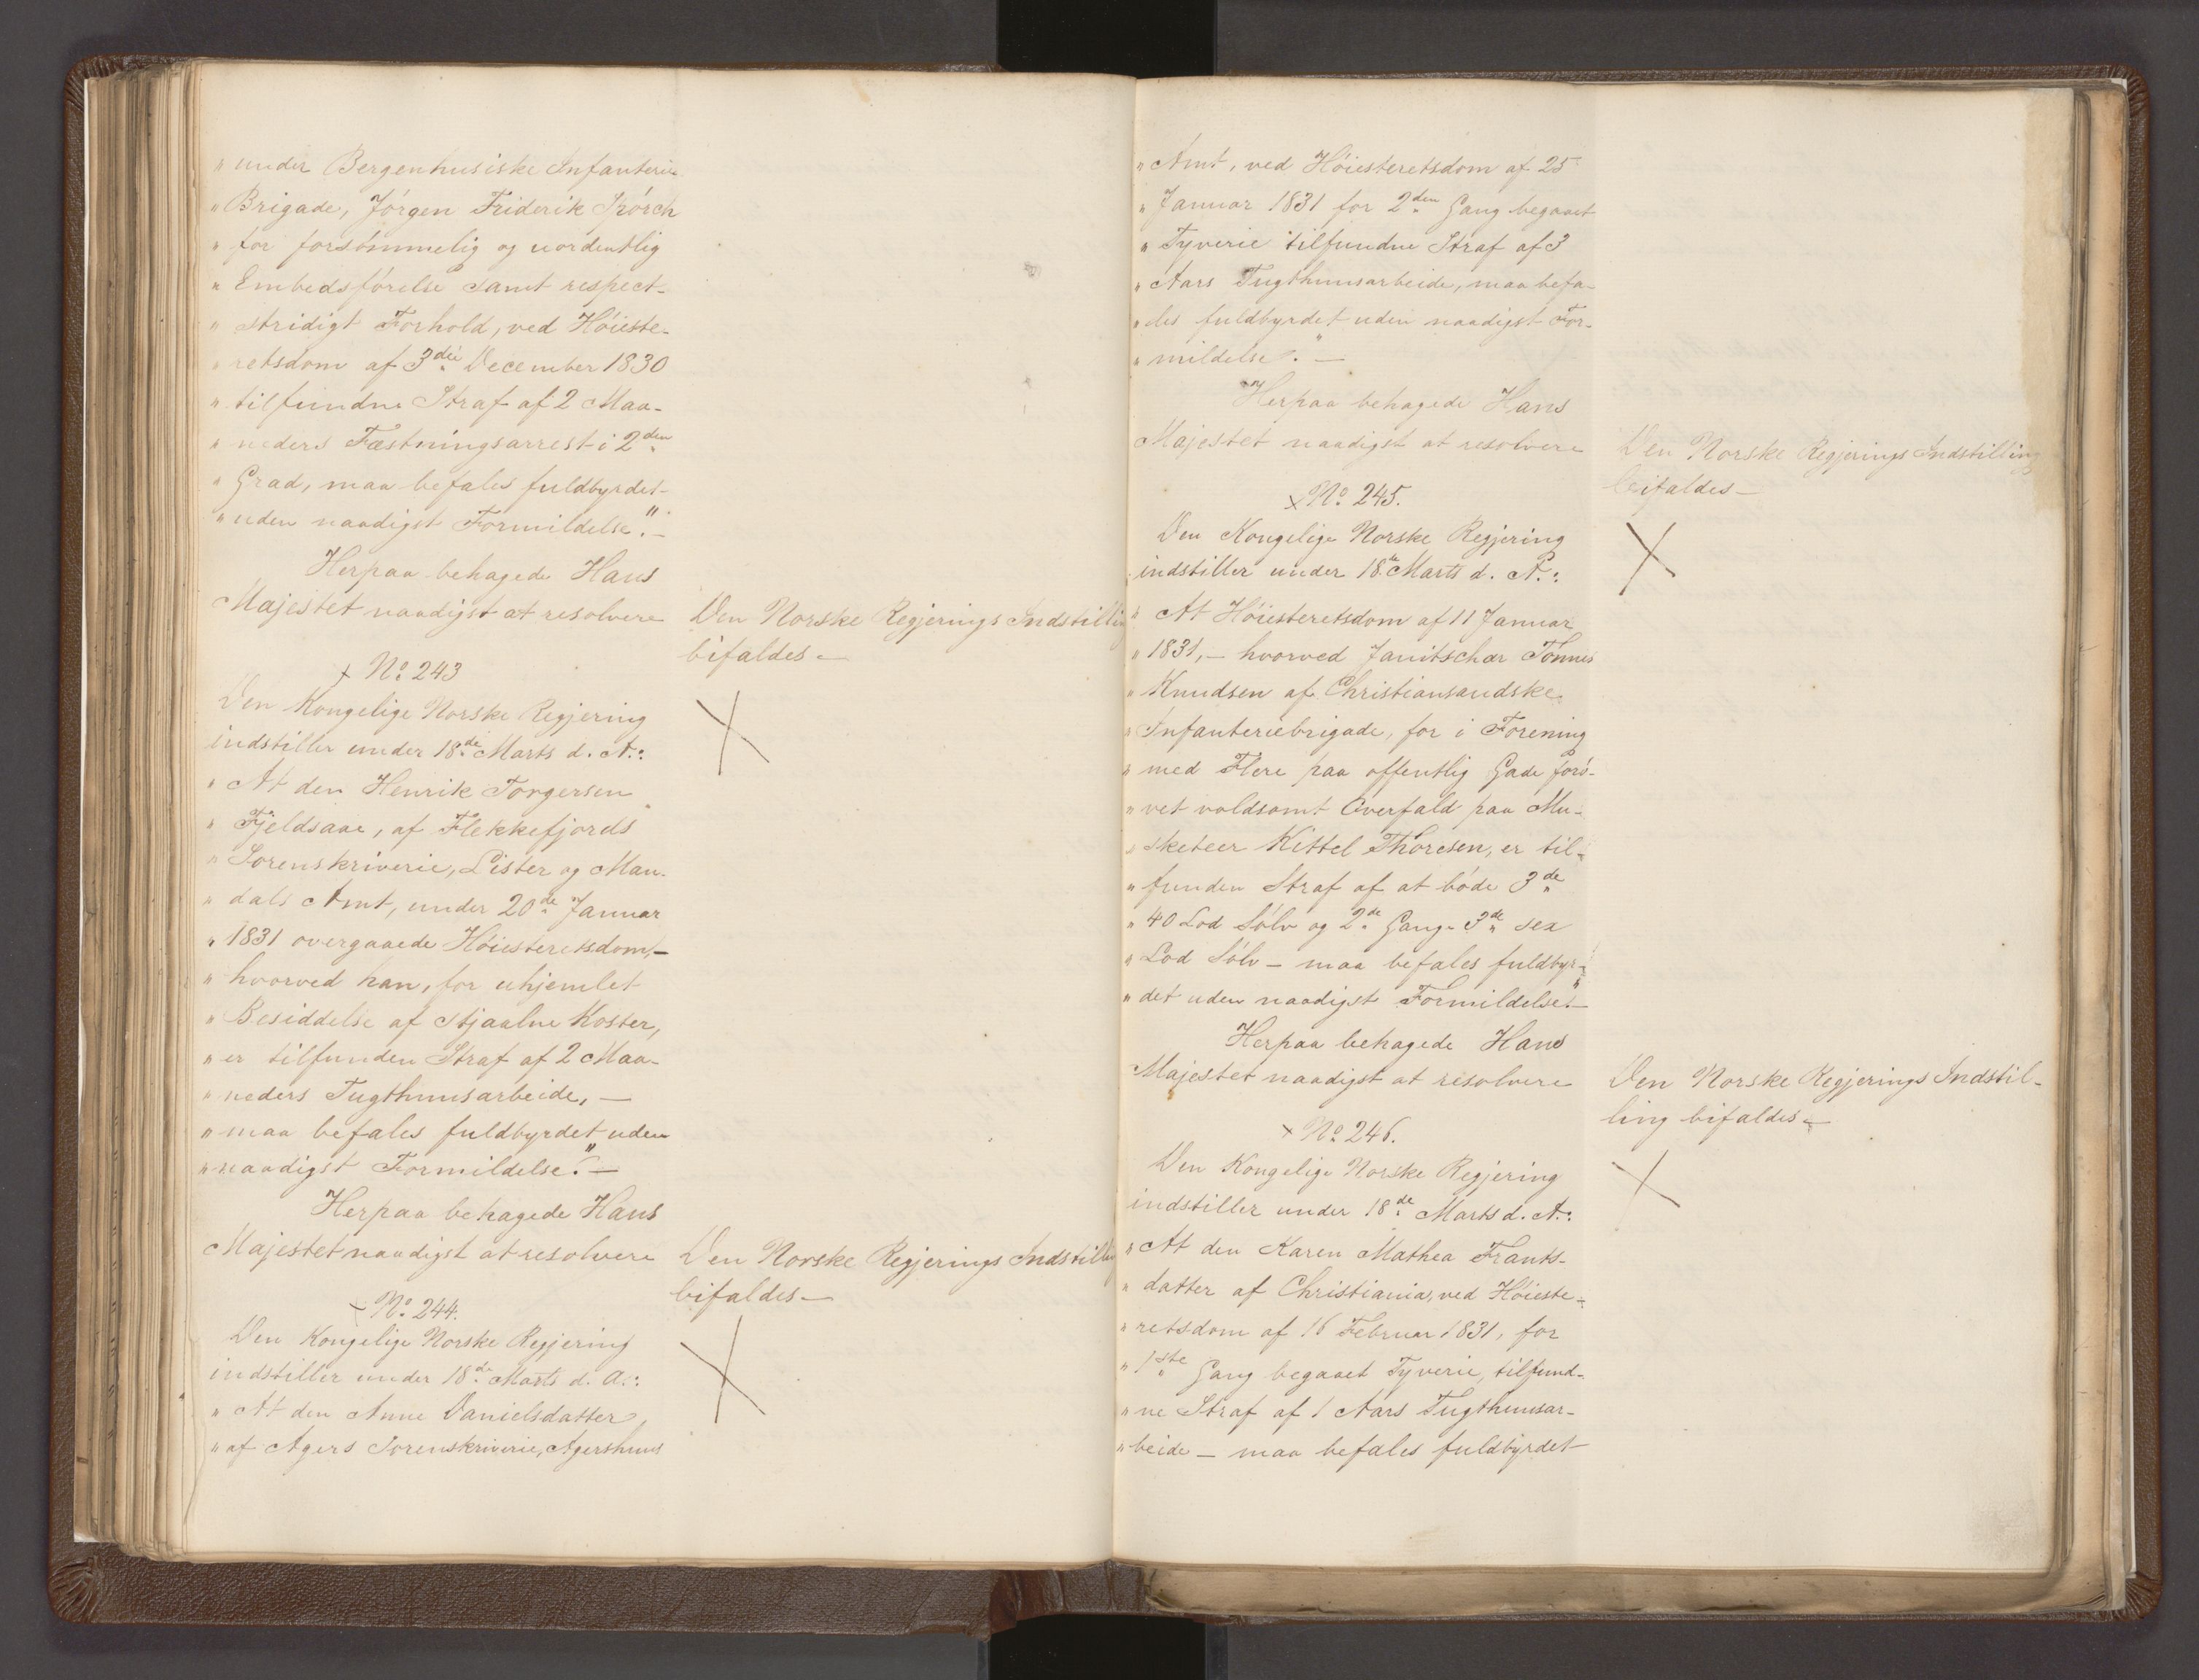 " under Bergenhusiske Infanterie
" Brigade, Jörgen Friderik Störch
" for forsömmelig og uordentlig
" Embedsförelse samt respect-
" stridigt Forhold, ved Höieste-
" retsdom af 3die December 1830
" tilfundne Straf af 2 Maa-
" neders Fæstningsarrest i 2den
" Grad, maa befales fuldbyrdet
" uden naadigst Formildelse." -
Herpaa behagede Hans
Majestet naadigst at resolvere
Den Norske Regjerings Indstilling
bifaldes -
x No 243
Den Kongelige Norske Regjering
indstiller under 18de Marts d. A.:
" At den Henrik Torgersen
" Fjeldsaae, af Flekkefjords
" Sorenskriverie, Lister og Man-
" dals Amt, under 20de Januar
" 1831 overgaaede Höiesteretsdom, -
" hvorved han, for uhjemlet
" Besiddelse af stjaalne Koster,
" er tilfunden Straf af 2 Maa-
" neders Tugthuusarbeide, -
" maa befales fuldbyrdet uden
" naadigst Formildelse." -
Herpaa behagede Hans
Majestet naadigst at resolvere
Den Norske Regjerings Indstilling
bifaldes -
x No 244.
Den Kongelige Norske Regjering
indstiller under 18de Marts d. A.:
" At den Anne Danielsdatter,
" af Agers Sorenskriverie, Agershuus
" Amt, ved Höiesteretsdom af 25
" Januar 1831 for 2den Gang begaaet
" Tyverie tilfundne Straf af 3
" Aars Tugthuusarbeide, maa befa-
" les fuldbyrdet uden naadigst For-
" mildelse." -
Herpaa behagede Hans
Majestet naadigst at resolvere
Den Norske Regjerings Indstilling
bifaldes -
x No 245.
Den Kongelige Norske Regjering
indstiller under 18de Marts d. A.:
" At Höiesteretsdom af 11 Januar
" 1831, - hvorved Janitschar Tönnes
" Knudsen af Christiansandske
" Infanteriebrigade, for i Forening
" med Flere paa offentlig Gade forö-
" vet voldsomt Overfald paa Mu-
" sketeer Kittel Thoresen, er til-
" funden Straf af at böde 3de
" 40 Lod Sölv og 2de Gange 3de sex
" Lod Sölv - maa befales fuldbyr-
" det uden naadigst Formildelse." -
Herpaa behagede Hans
Majestet naadigst at resolvere
Den Norske Regjerings Indstil-
ling bifaldes -
x No 246.
Den Kongelige Norske Regjering
indstiller under 18de Marts d. A.:
" At den Karen Mathea Frants-
" datter af Christiania, ved Höieste-
" retsdom af 16 Februar 1831, for
" 1ste Gang begaaet Tyverie, tilfund-
" ne Straf af 1 Aars Tugthuusar-
" beide - maa befales fuldbyrdet